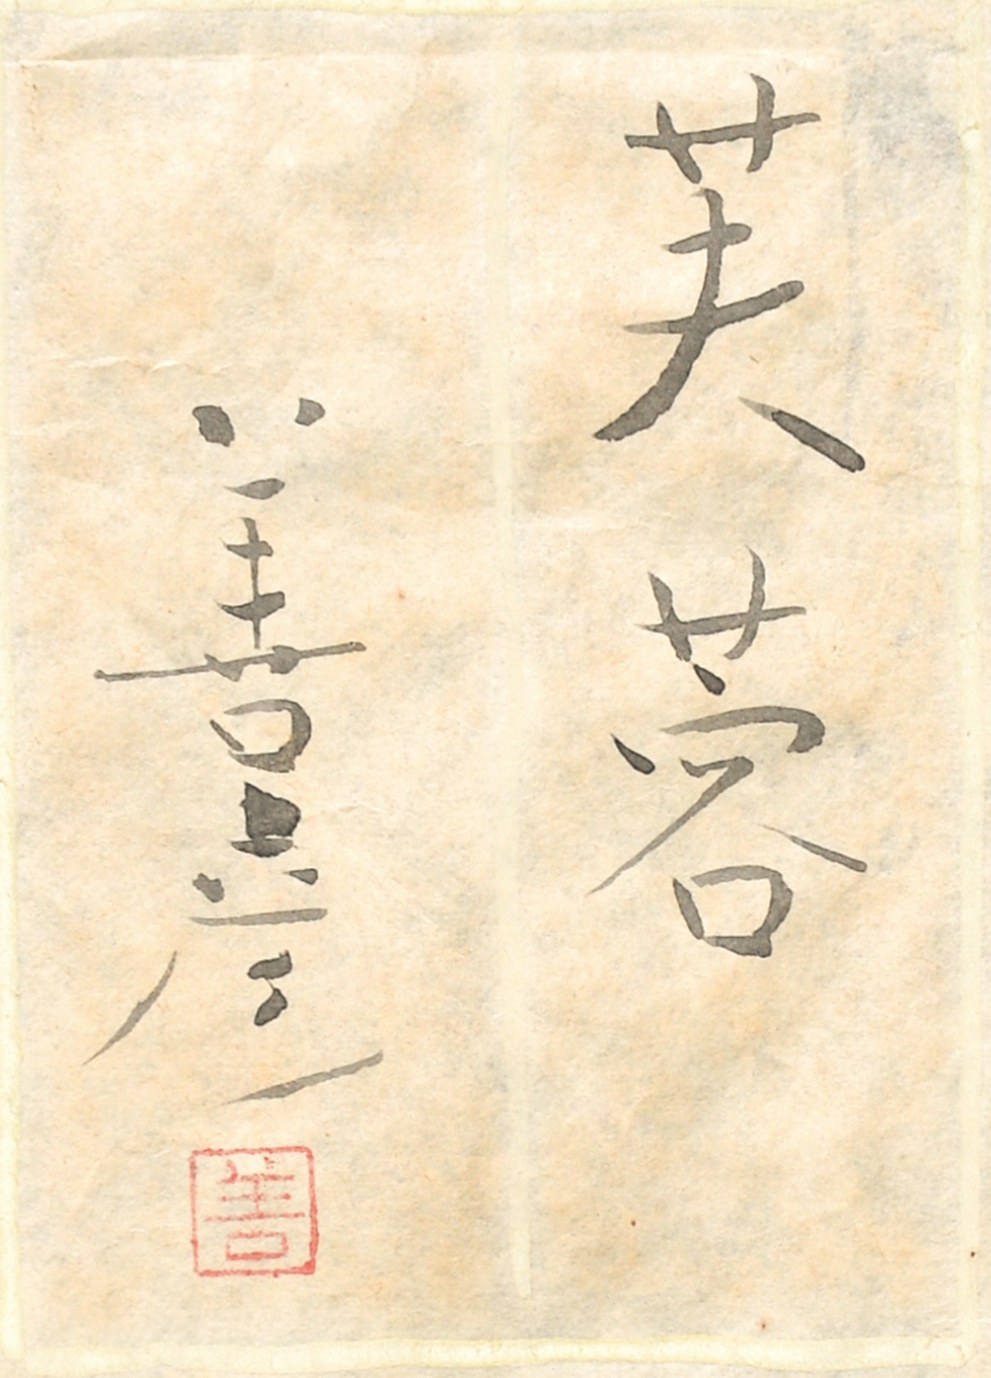 芙蓉
善彦
善